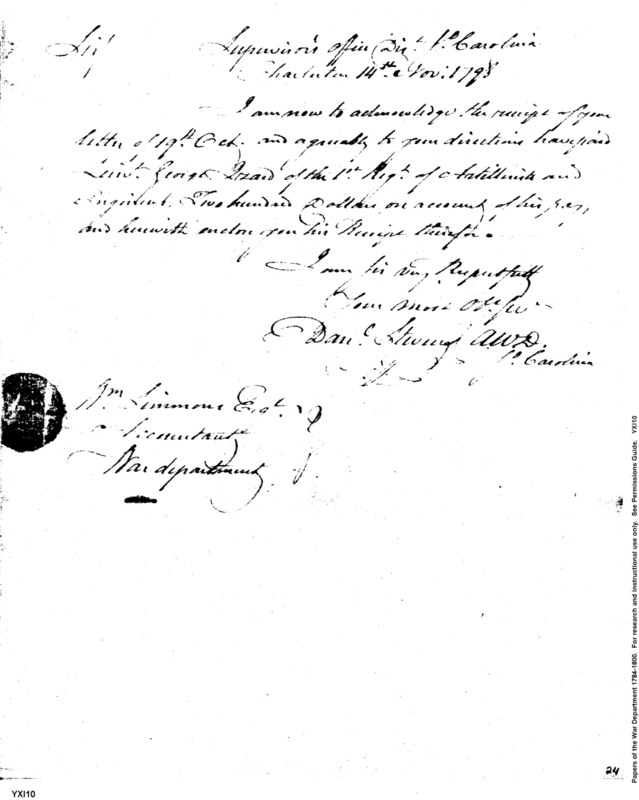 Sir
Supervisor's office Dist. So. Carolina
Charleston 14th Nov: 1798
I am now to acknowledge the receipt of your
letter of 19th Oct. and agreeably to your directions have paid
Lieut. George Izard of the 1st Regt. of Artillerists and
Engineers, Two hundred Dollars on account of his pay,
and herewith enclose you his Receipt therefor.
I am Sir very Respectfully
Your most Obt. Ser
Danl. Stevens A.W.D.
So. Carolina
Wm. Simmons Esqr.
Accountant
War department
24
YXI10
Papers of the War Department 1784-1800. For research and instructional use only. See Permissions Guide. YXI10